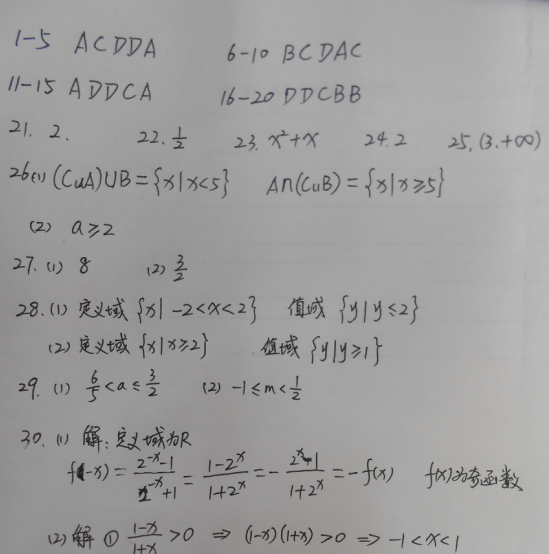 1-5 ACDDA 6-10 BCDAC
11-15 ADDCA 16-20 DDCBB
21. 2. 22. 1/2 23. x²+x 24. 2 25. (3.+∞)
26(1) (CuA)∪B={x|x<5} A∩(CuB)={x|x≥5}
(2) a≥2
27. (1) 8 (2) 3/2
28. (1) 定义域 {x|-2<x<2} 值域 {y|y≤2}
(2) 定义域 {x|x≥2} 值域 {y|y≥1}
29. (1) 6/5<a≤3/2 (2) -1≤m<1/2
30. (1) 解:定义域为R
f(-x)=(2^-x-1)/(2^-x+1)=(1-2^x)/(1+2^x)=-(2^x-1)/(1+2^x)=-f(x) f(x)为奇函数
(2) 解 ① (1-x)/(1+x)>0 ⇒ (1-x)(1+x)>0 ⇒ -1<x<1